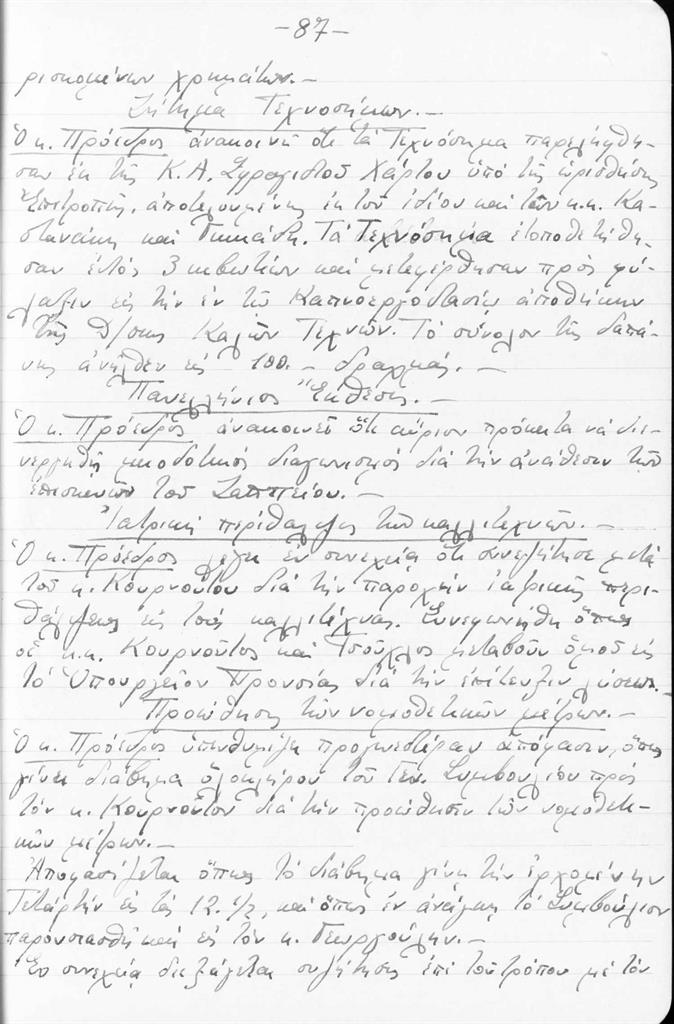 -87-
ρισκομένων χρημάτων.-
Ζήτημα Τεχνοσήμων.-
Ὁ κ. Πρόεδρος ἀνακοινοῖ ὅτι τά Τεχνόσημα παρελήφθη-
σαν ἐκ τῆς Κ.Α. Σφραγιστοῦ Χάρτου ὑπό τῆς ὁρισθείσης
Ἐπιτροπῆς, ἀποτελουμένης ἐκ τοῦ ἰδίου καί τῶν κ.κ. Κα-
στανάκη καί . Τά Τεχνόσημα ἐτοποθετήθη-
σαν ἐντός 3 κιβωτίων καί μετεφέρθησαν πρός φύ-
λαξιν εἰς τήν ἐν τῷ Καπνοεργοστασίῳ ἀποθήκην
τῆς Δ/σεως Καλῶν Τεχνῶν. Τό σύνολον τῆς δαπά-
νης ἀνῆλθεν εἰς 100.- δραχμάς.-
Πανελλήνιος Ἔκθεσις.-
Ὁ κ. Πρόεδρος ἀνακοινοῖ ὅτι αὔριον πρόκειται νά διε-
νεργηθῇ μειοδοτικός διαγωνισμός διά τήν ἀνάθεσιν τῶν
ἐπισκευῶν τοῦ Ζαππείου.-
Ἰατρική περίθαλψις τῶν καλλιτεχνῶν.-
Ὁ κ. Πρόεδρος λέγει ἐν συνεχείᾳ ὅτι συνεζήτησε μετά
τοῦ κ. Κουρνούτου διά τήν παροχήν ἰατρικῆς περι-
θάλψεως εἰς τούς καλλιτέχνας. Συνεφωνήθη ὅπως
οἱ κ.κ. Κουρνοῦτος καί Τσοῦχλος μεταβοῦν ὁμοῦ εἰς
τό Ὑπουργεῖον Προνοίας διά τήν ἐπίτευξιν λύσεως.-
Προώθησις τῶν νομοθετικῶν μέτρων.-
Ὁ κ. Πρόεδρος ὑπενθυμίζει προγενεστέραν ἀπόφασιν, ὅπως
γίνει διάβημα ὁλοκλήρου τοῦ Γεν. Συμβουλίου πρός
τόν κ. Κουρνοῦτον διά τήν προώθησιν τῶν νομοθετι-
κῶν μέτρων.-
Ἀποφασίζεται ὅπως τό διάβημα γίνῃ τήν ἐρχομένην
Τετάρτην εἰς τάς 12.1/2, καί ὅπως ἐν ἀνάγκῃ τό Συμβούλιον
παρουσιασθῇ καί εἰς τόν κ. Γεωργούλην.-
Ἐν συνεχείᾳ διεξάγεται συζήτησις ἐπί τοῦ τρόπου μέ τόν